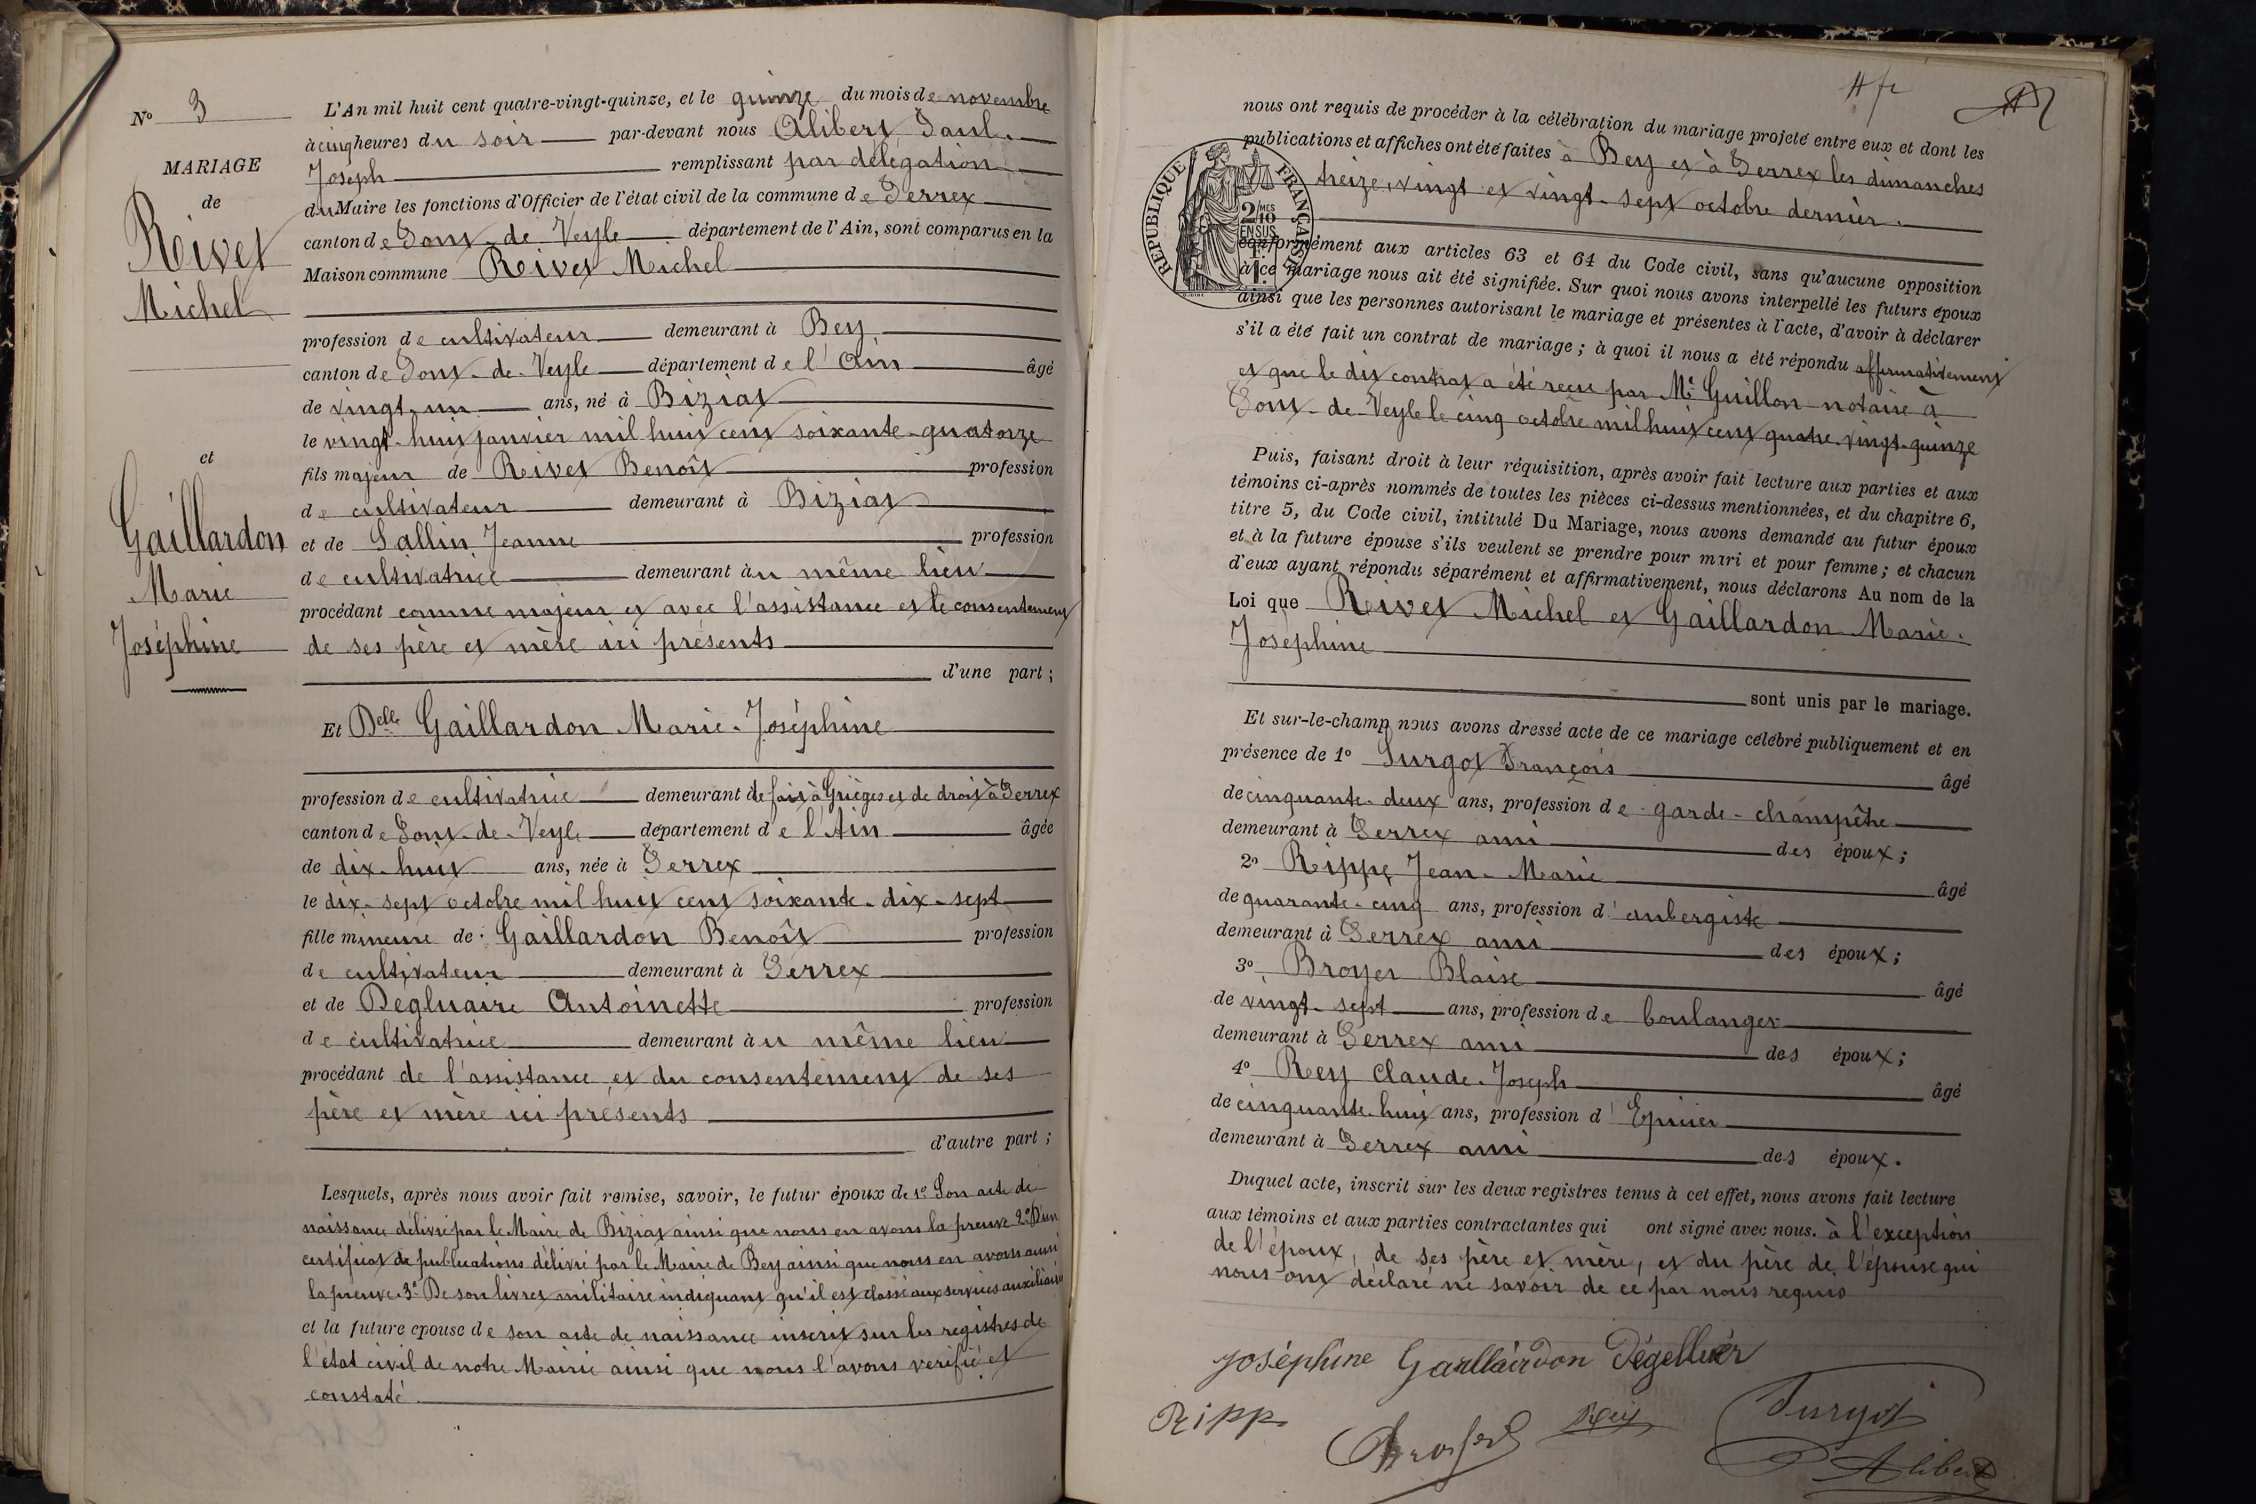 N° 3
MARIAGE
de
Reivet
Michel
et
Gaillardon
Marie
Joséphine
L'An mil huit cent quatre-vingt-quinze, et le quinze du mois de novembre
à cinq heures du soir par-devant nous Alibert Paul
Joseph remplissant par délégation
du Maire les fonctions d'Officier de l'état civil de la commune de Perrex
canton de Pont-de-Veyle département de l'Ain, sont comparus en la
Maison commune Reivet Michel
profession de cultivateur demeurant à Bey
canton de Pont-de-Veyle département de l'Ain âgé
de vingt-un ans, né à Biziat
le vingt-huit janvier mil huit cent soixante-quatorze
fils majeur de Reivet Benoît profession
de cultivateur demeurant à Biziat
et de Sallin Jeanne profession
de cultivatrice demeurant au même lieu
procédant comme majeur et avec l'assistance et le consentement
de ses père et mère ici présents
d'une part ;
Et Delle Gaillardon Marie-Joséphine
profession de cultivatrice demeurant de fait à Grièges et de droit à Perrex
canton de Pont-de-Veyle département de l'Ain âgée
de dix-huit ans, née à Perrex
le dix-sept octobre mil huit cent soixante-dix-sept
fille mineure de Gaillardon Benoît profession
de cultivateur demeurant à Perrex
et de Degluaire Antoinette profession
de cultivatrice demeurant au même lieu
procédant de l'assistance et du consentement de ses
père et mère ici présents
d'autre part ;
Lesquels, après nous avoir fait remise, savoir, le futur époux de 1° Son acte de
naissance délivré par le Maire de Biziat ainsi que nous en avons la preuve 2° D'un
certificat de publications délivré par le Maire de Bey ainsi que nous en avons aussi
la preuve. 3° De son livret militaire indiquant qu'il est classé aux services auxiliaires
et la future épouse de son acte de naissance inscrit sur les registres de
l'état civil de notre Mairie ainsi que nous l'avons vérifié et
constaté
nous ont requis de procéder à la célébration du mariage projeté entre eux et dont les
publications et affiches ont été faites à Bey et à Perrex les dimanches
treize, vingt et vingt-sept octobre dernier.
REPUBLIQUE FRANÇAISE
2/10 MES
EN SUS
1 F.
conformément aux articles 63 et 64 du Code civil, sans qu'aucune opposition
à ce mariage nous ait été signifiée. Sur quoi nous avons interpellé les futurs époux
ainsi que les personnes autorisant le mariage et présentes à l'acte, d'avoir à déclarer
s'il a été fait un contrat de mariage ; à quoi il nous a été répondu affirmativement
et que le dit contrat a été reçu par Me Guillon notaire à
Pont-de-Veyle le cinq octobre mil huit cent quatre-vingt-quinze
Puis, faisant droit à leur réquisition, après avoir fait lecture aux parties et aux
témoins ci-après nommés de toutes les pièces ci-dessus mentionnées, et du chapitre 6,
titre 5, du Code civil, intitulé Du Mariage, nous avons demandé au futur époux
et à la future épouse s'ils veulent se prendre pour mari et pour femme ; et chacun
d'eux ayant répondu séparément et affirmativement, nous déclarons Au nom de la
Loi que Reivet Michel et Gaillardon Marie-
Joséphine
sont unis par le mariage.
Et sur-le-champ nous avons dressé acte de ce mariage célébré publiquement et en
présence de 1° Surgot François âgé
de cinquante-deux ans, profession de garde-champêtre
demeurant à Perrex ami des époux ;
2° Rippe Jean-Marie âgé
de quarante-cinq ans, profession d'aubergiste
demeurant à Perrex ami des époux ;
3° Broyer Blaise âgé
de vingt-sept ans, profession de boulanger
demeurant à Perrex ami des époux ;
4° Rey Claude-Joseph âgé
de cinquante-huit ans, profession d'Epicier
demeurant à Perrex ami des époux.
Duquel acte, inscrit sur les deux registres tenus à cet effet, nous avons fait lecture
aux témoins et aux parties contractantes qui ont signé avec nous. à l'exception
de l'époux, de ses père et mère, et du père de l'épouse qui
nous ont déclaré ne savoir de ce par nous requis
Joséphine Gaillairdon Dégelluer
Ripp
Rey
Surgot
Alibert